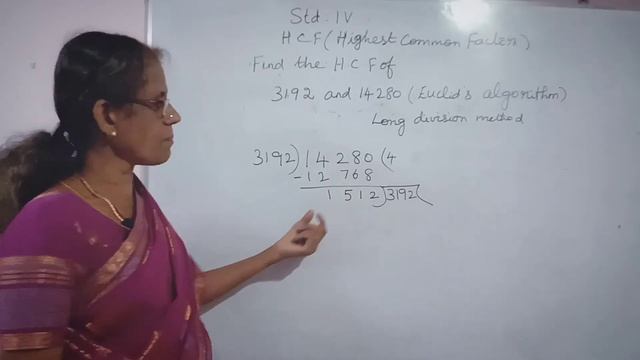 Std. IV
HCF (Highest Common Factor)
Find the HCF of
3192 and 14280 (Euclid's algorithm)
Long division method
3192) 14280 (4
-12 768
1512) 3192 (